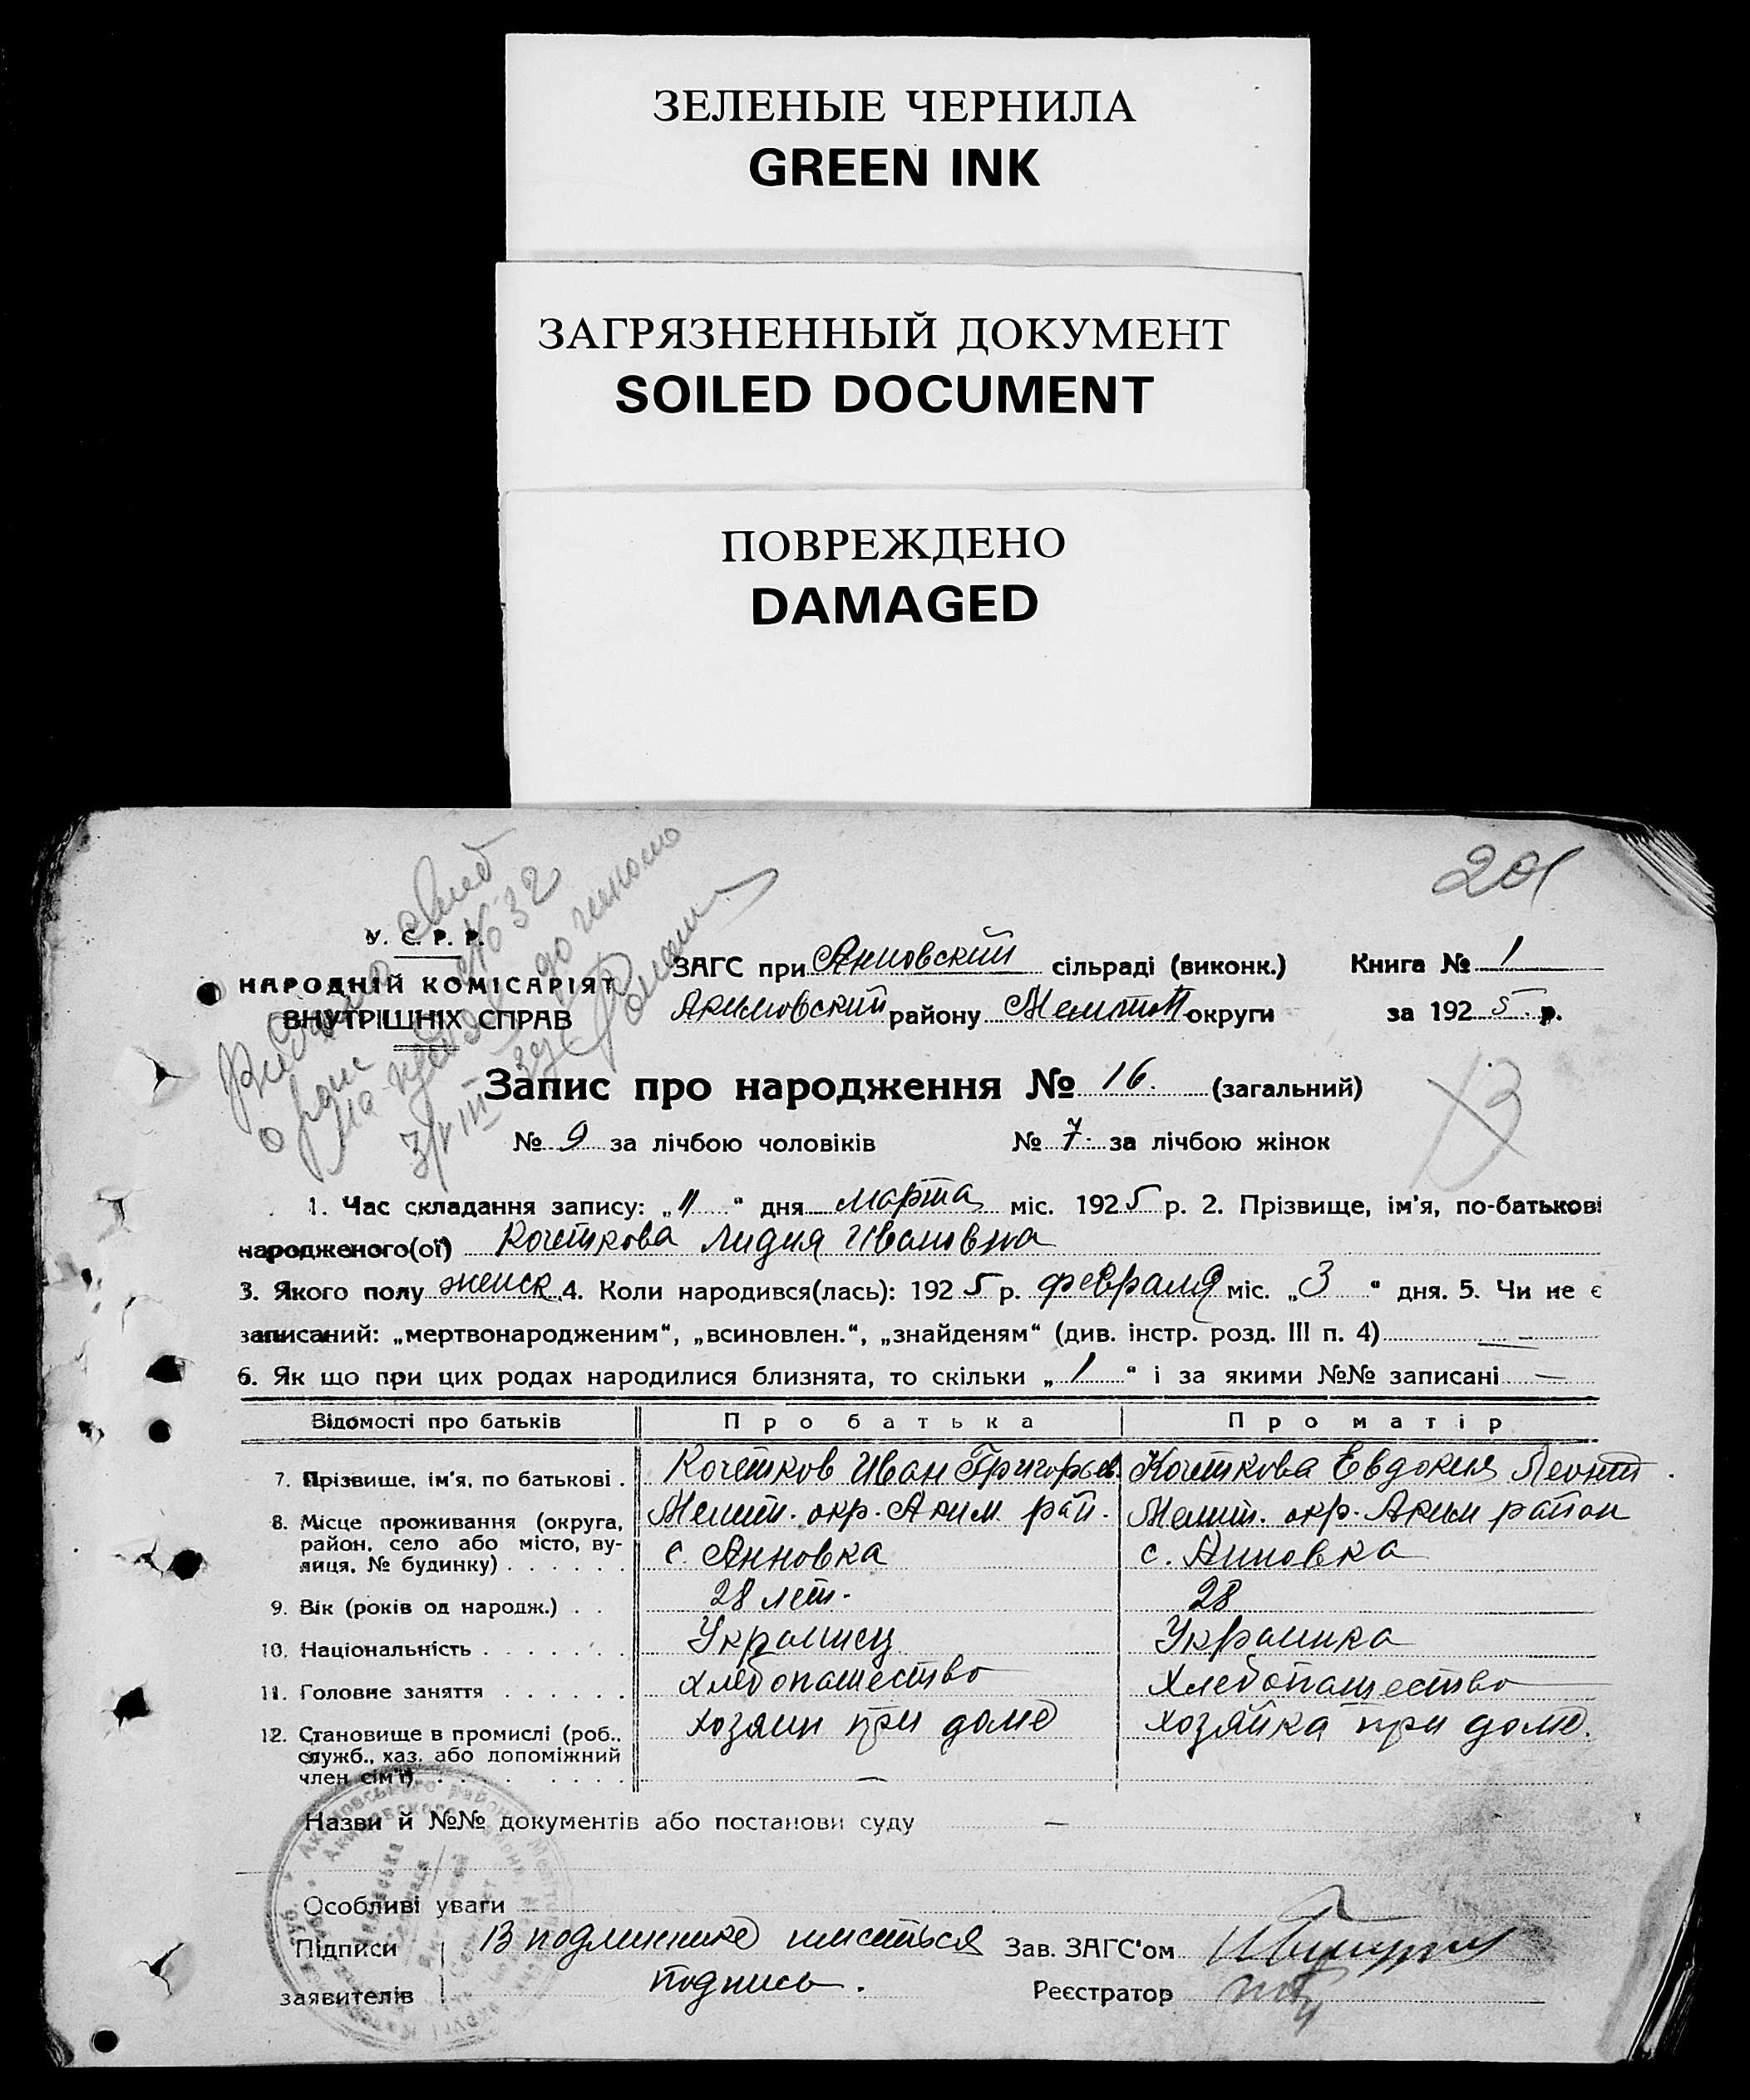 ЗЕЛЕНЫЕ ЧЕРНИЛА
GREEN INK
ЗАГРЯЗНЕННЫЙ ДОКУМЕНТ
SOILED DOCUMENT
ПОВРЕЖДЕНО
DAMAGED
201
У. С. Р. Р.
НАРОДНІЙ КОМІСАРІЯТ
ВНУТРІШНІХ СПРАВ
№ 32
ЗАГС при Анновский сільраді (виконк.) Книга № 1
Акимовский району Мелитоп округи за 1925 р.
Запис про народження № 16. (загальний)
№ 9 за лічбою чоловіків № 7. за лічбою жінок
1. Час складання запису: „11“ дня марта міс. 1925 р. 2. Прізвище, ім'я, по-батькові
народженого(ої) Кочеткова Лидия Ивановна
3. Якого полу женск. 4. Коли народився(лась): 1925 р. февраля міс. „3“ дня. 5. Чи не є
записаний: „мертвонародженим“, „всиновлен.“, „знайденям“ (див. інстр. розд. III п. 4) —
6. Як що при цих родах народилися близнята, то скільки „1“ і за якими №№ записані —
Відомості про батьків Про батька Про матір
7. Прізвище, ім'я, по батькові . Кочетков Иван Григорьев. Кочеткова Евдокия Леонт
8. Місце проживання (округа, Мелит. окр. Аким. рай. Мелит. окр. Аким район
район, село або місто, ву- с. Анновка с. Анновка
лиця, № будинку) . . . . . .
9. Вік (років од народж.) . . 28 лет. 28
10. Національність . . . . . . . Украинец Украинка
11. Головне заняття . . . . . . хлебопашество хлебопашество
12. Становище в промислі (роб., хозяин при доме хозяйка при доме.
служб., хаз. або допоміжний
член сім'ї) . . . . . . . . . —
Назви й №№ документів або постанови суду —
Особливі уваги
Підписи В подлиннике имеиться Зав. ЗАГС'ом
заявителів подпись. Реєстратор